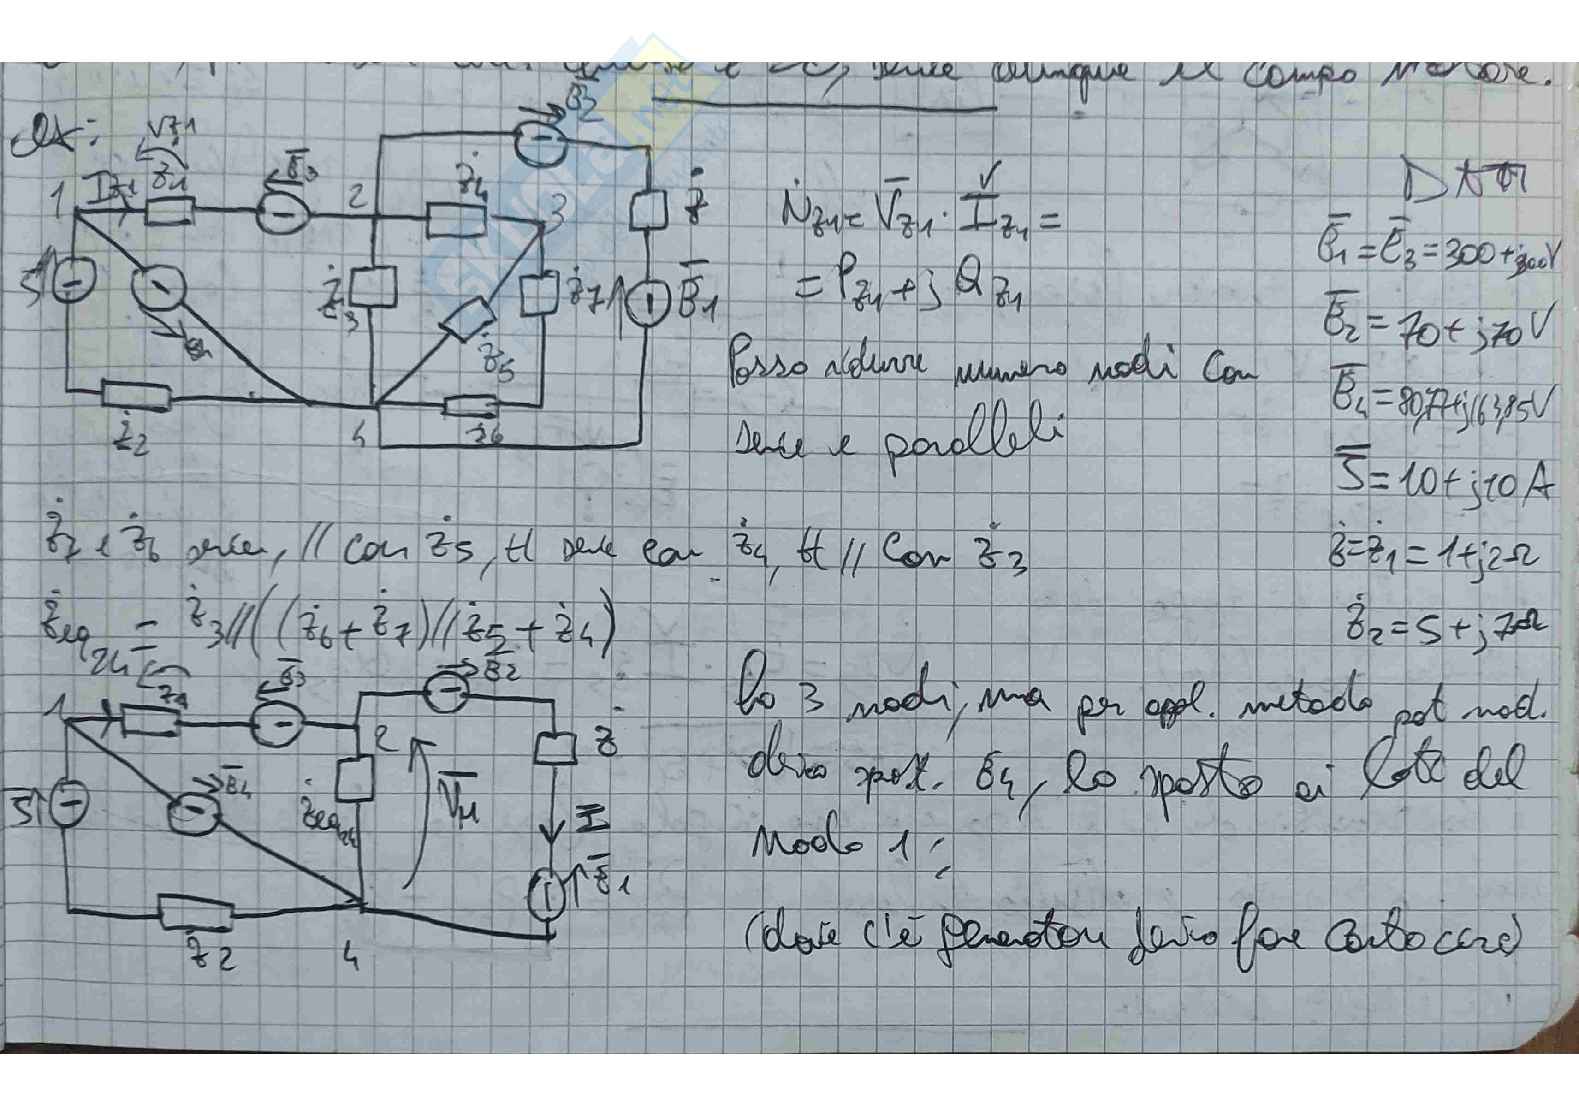 dunque il campo
es:
Vz1
Iz1 ż1 Ē3 2 ż4 3 Ē2 ż
1
S̄ ż3 ż7 Ē1
ż5
ż2 4 z6
Ṅz1 = V̄z1 · Ǐz1 =
= Pz1 + j Qz1
Posso ridurre numero nodi con
serie e paralleli
DATI
Ē1 = Ē3 = 300 + j300V
Ē2 = 70 + j70V
Ē4 = 80,77 + j163,85V
S̄ = 10 + j10 A
ż = ż1 = 1 + j2Ω
ż2 = 5 + j7Ω
ż7 e ż6 serie, // con ż5, serie con ż4, // con ż3
żeq24 = ż3//((ż6 + ż7)//ż5 + ż4)
1 z1 Ē3 2 Ē2 ż
S̄ Ē4 żeq24 V̄ I Ē1
ż2 4
Ho 3 nodi, ma per appl. metodo pot nod.
devo spost. E4, lo sposto ai lati del
nodo 1:
(dove c'è generatore devo fare cortocirc)